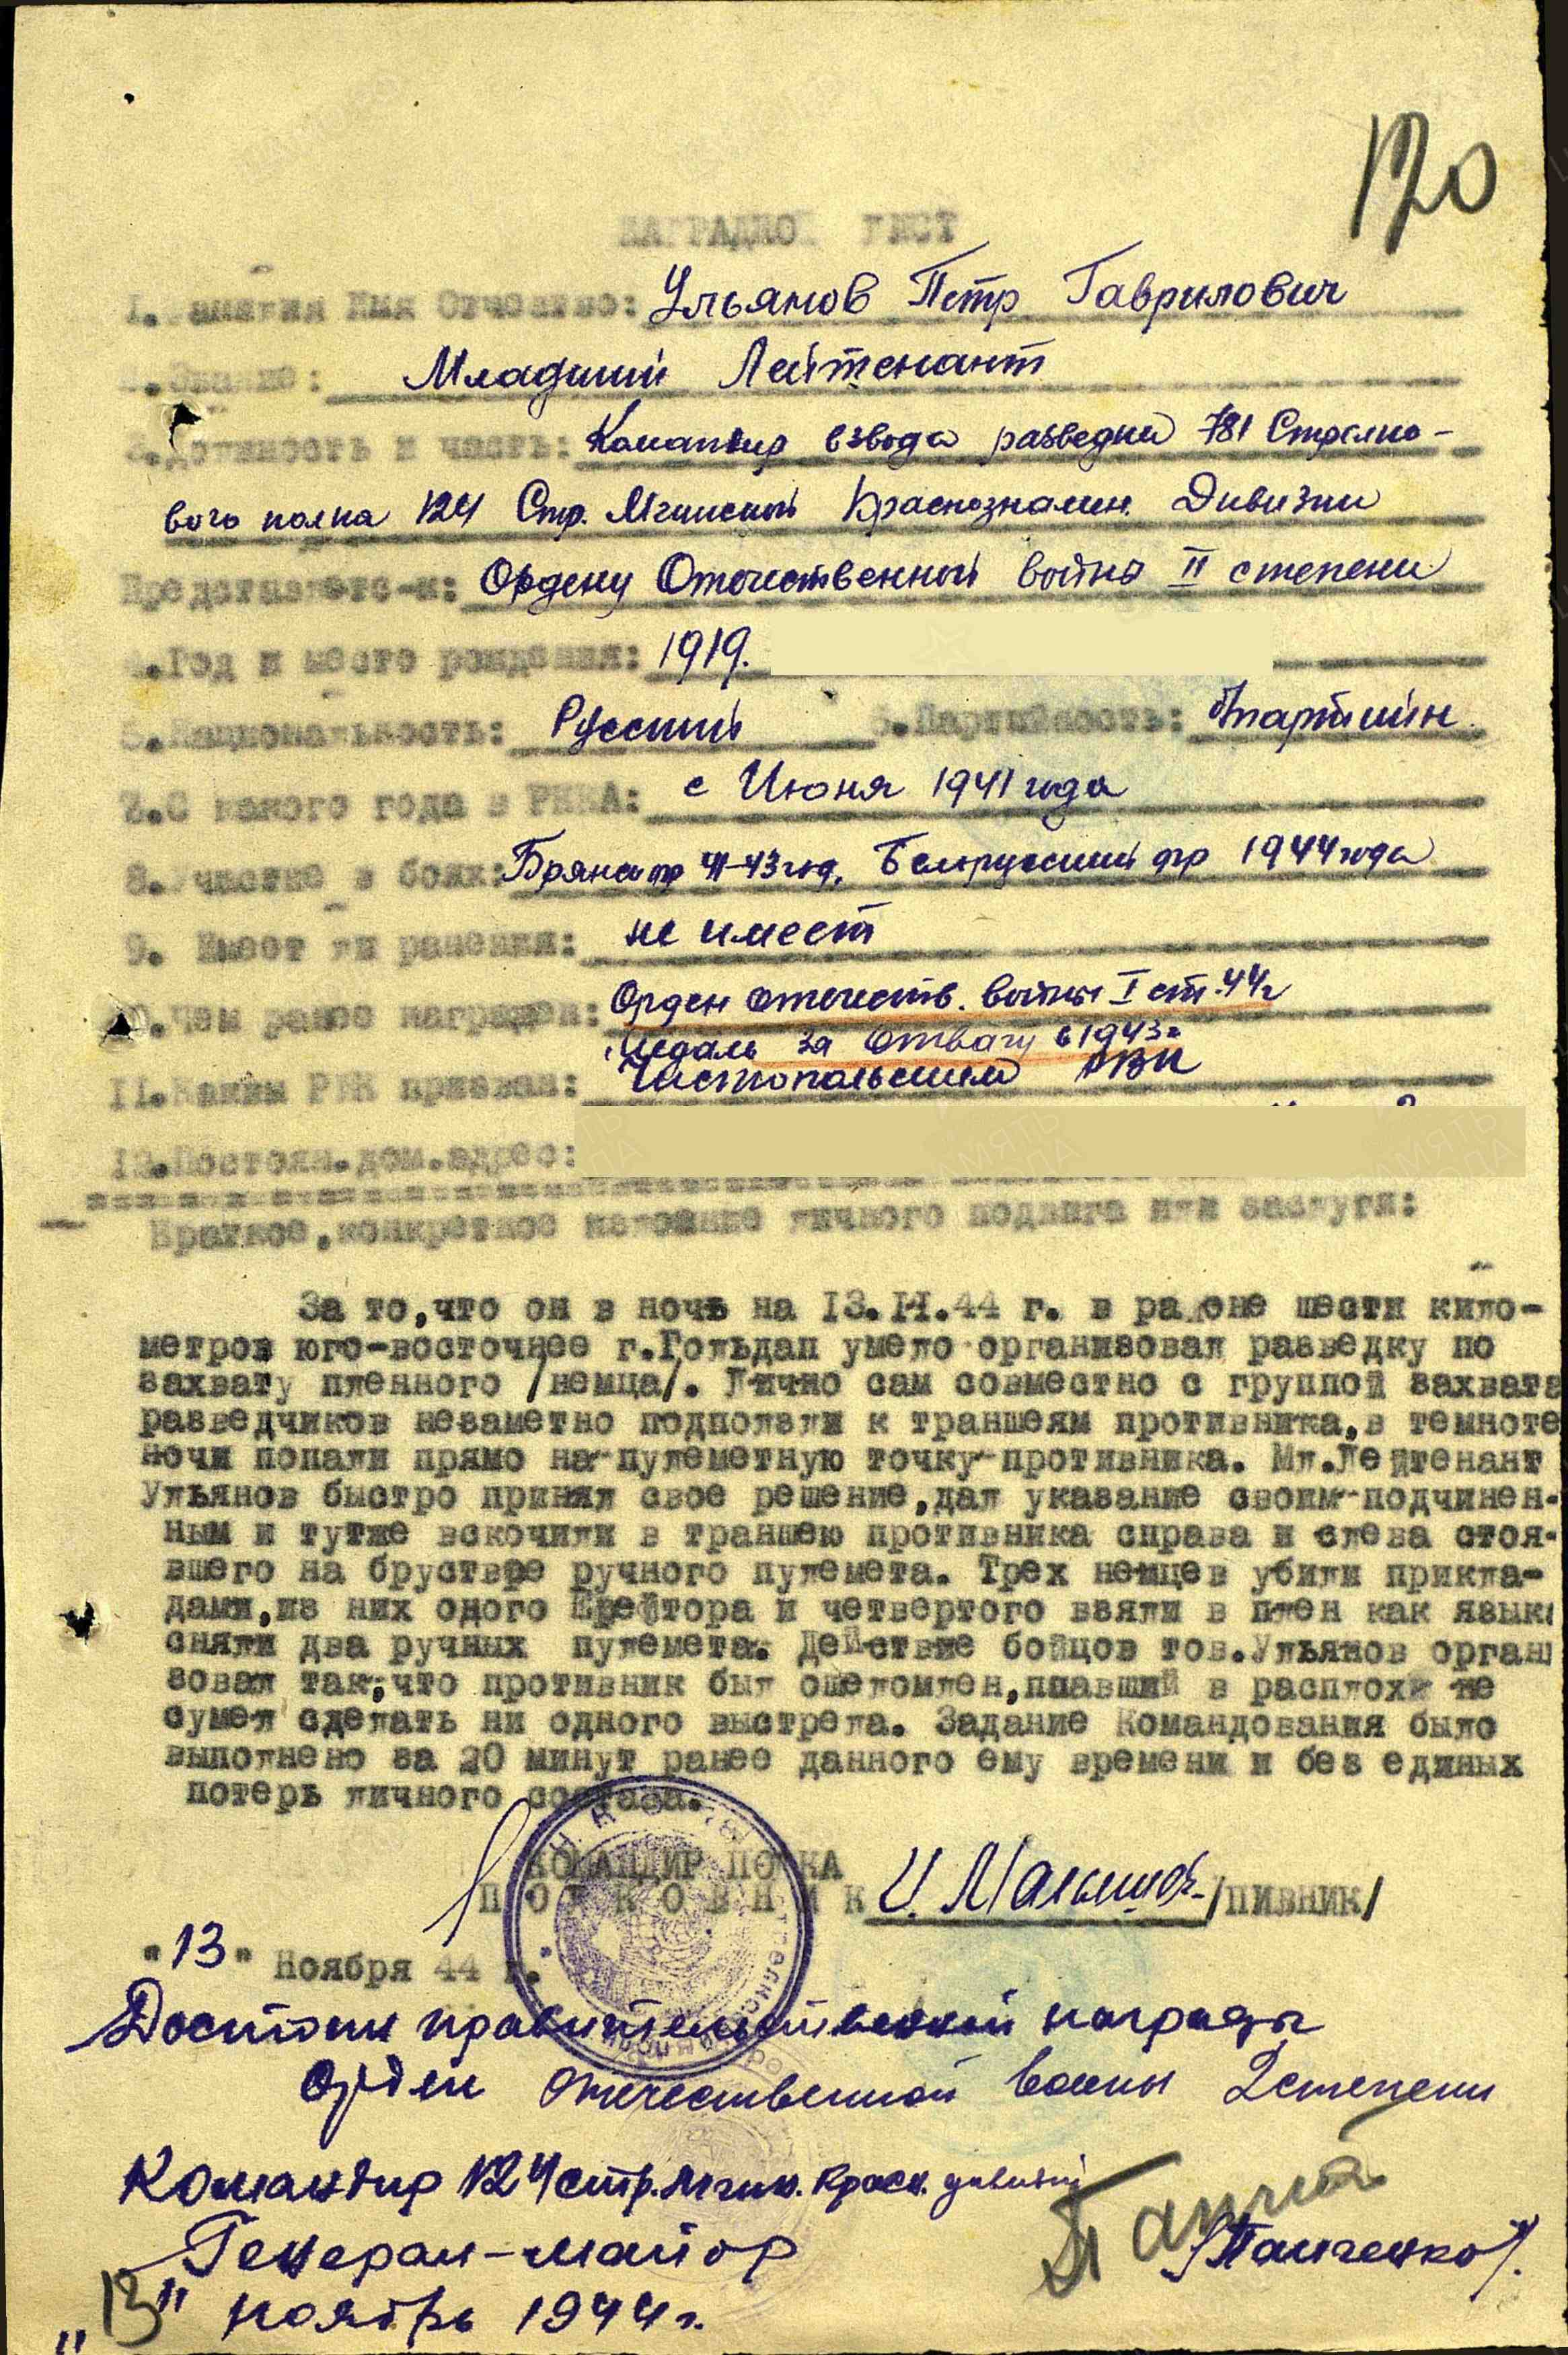 120
НАГРАДНОЙ ЛИСТ
1. Фамилия Имя Отчество: Ульянов Петр Гаврилович
2. Звание: Младший Лейтенант
3. Должность и часть: Командир взвода разведки 781 Стрелко-
вого полка 124 Стр. Мгинской Краснознамен. Дивизии
Представляется-к: Ордену Отечественной война II степени
4. Год и место рождения: 1919.
5. Национальность: Русский 6. Партийность: б/партийн.
7. С какого года в РККА: с Июня 1941 года
8. Участие в боях: Брянск фр 41-43 год, Белорусский фр 1944 года
9. Имеет ли ранения: не имеет
10. Чем ранее награжден: Орден отечеств. войны I ст. 44г
Медаль за Отвагу в 1943г
11. Каким РВК призван: Чистопольским РВК
12. Постоян. дом. адрес:
Краткое, конкретное изложение личного подвига или заслуги:
За то, что он в ночь на 13.11.44 г. в районе шести кило-
метров юго-восточнее г. Гольдап умело организовал разведку по
захвату пленного /немца/. Лично сам совместно с группой захвата
разведчиков незаметно подползли к траншеям противника, в темноте
ночи попали прямо на пулеметную точку противника. Мл. Лейтенант
Ульянов быстро принял свое решение, дал указание своим подчинен-
ным и тутже вскочили в траншею противника справа и слева стоя-
вшего на бруствре ручного пулемета. Трех немцев убили прикла-
дами, из них одного Ефрейтора и четвертого взяли в плен как язык
сняли два ручных пулемета. Действие бойцов тов. Ульянов органи
зовал так, что противник был ошеломлен, ппавший в расплох не
сумел сделать ни одного выстрела. Задание Командования было
выполнено за 20 минут ранее данного ему времени и без единых
потерь личного состава.
КОМАНДИР ПОЛКА
ПОЛКОВНИК И. Малышев /ПИВНИК/
"13" Ноября 44 г.
Достоин правительственной награды
Орден отечественной войны 2 степени
Командир 124 стр. Мгин. Красн. дивизии
Генерал-майор /Папченко/.
"13" ноябрь 1944 г.